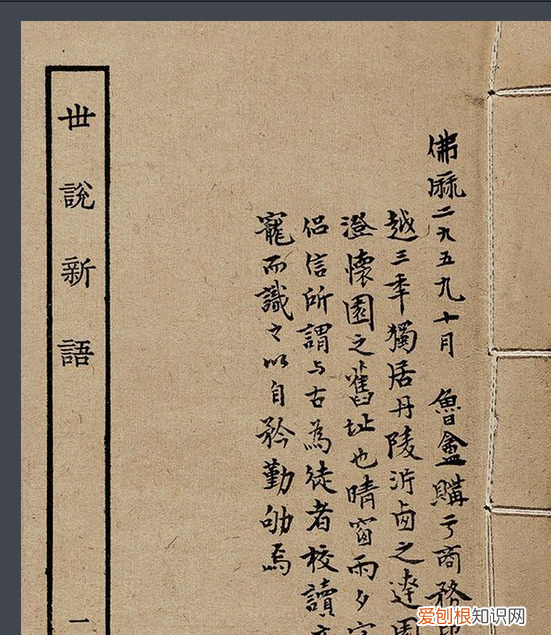 佛厤二九五九十月 魯盦購亏商務
越三季獨居丹陵沜卤之達
澄懷園之舊址也晴窗雨夕
侣信所謂与古為徒者校讀
寵而識之以自矜勤劬焉
世說新語 一
爱刨根知识网